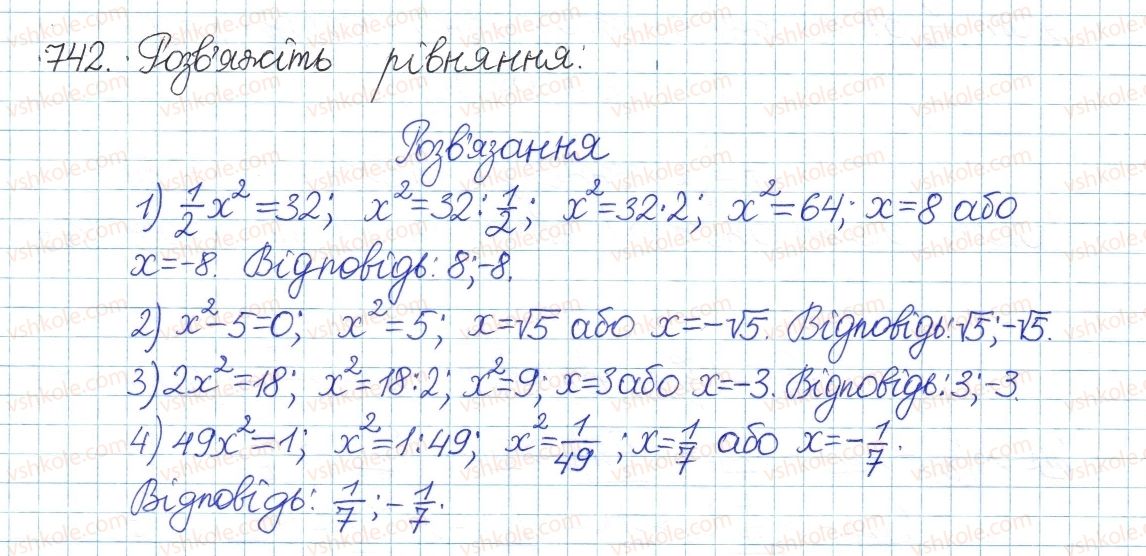 742. Розв'яжіть рівняння:
Розв'язання
1) 1/2 x² = 32; x² = 32 : 1/2; x² = 32·2; x² = 64; x = 8 або
x = -8. Відповідь: 8; -8.
2) x² - 5 = 0; x² = 5; x = √5 або x = -√5. Відповідь: √5; -√5.
3) 2x² = 18; x² = 18:2; x² = 9; x = 3 або x = -3. Відповідь: 3; -3.
4) 49x² = 1; x² = 1:49; x² = 1/49; x = 1/7 або x = -1/7.
Відповідь: 1/7; -1/7.
vshkole.com